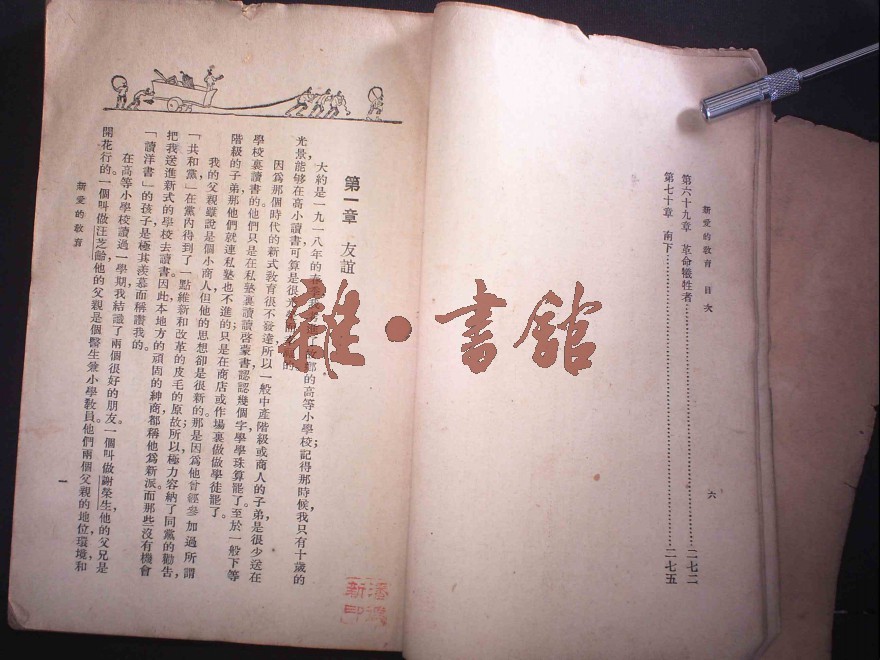 新愛的教育　目次
第六十九章　革命犧牲者……二七二
第七十章　南下……二七五
六
第一章　友誼
大約是一九一八年的春季的高等小學校；記得那時候，我只有十歲的
光景，能够在高小讀書，可算是很光的
因爲那個時代的新式教育很不發達，所以一般中產階級或商人的子弟是很少送在
學校裏讀書的。他們只是在私塾裏讀讀啓蒙書，認認幾個字，學學珠算罷了。至於一般下等
階級的子弟，那他們就連私塾也不進的，只是在商店或作場裏做做學徒罷了。
我的父親雖說是個小商人，但他的思想卻是很新的；那是因爲他曾經參加過所謂
「共和黨」，在黨內得到了一點維新和改革的皮毛的原故；所以極力容納了同黨的勸告，
把我送進新式的學校去讀書。因此本地方的頑固的紳商，都稱他爲新派。而那些沒有機會
「讀洋書」的孩子，是極其羨慕而稱讚我的。
在高等小學校讀過一學期，我結識了兩個很好的朋友。一個叫做謝榮生，他的父兄是
開花行的。一個叫做汪芝齡，他的父親是個醫生兼小學教員。他們兩個父親的地位，環境和
新愛的教育
一
雜·書館